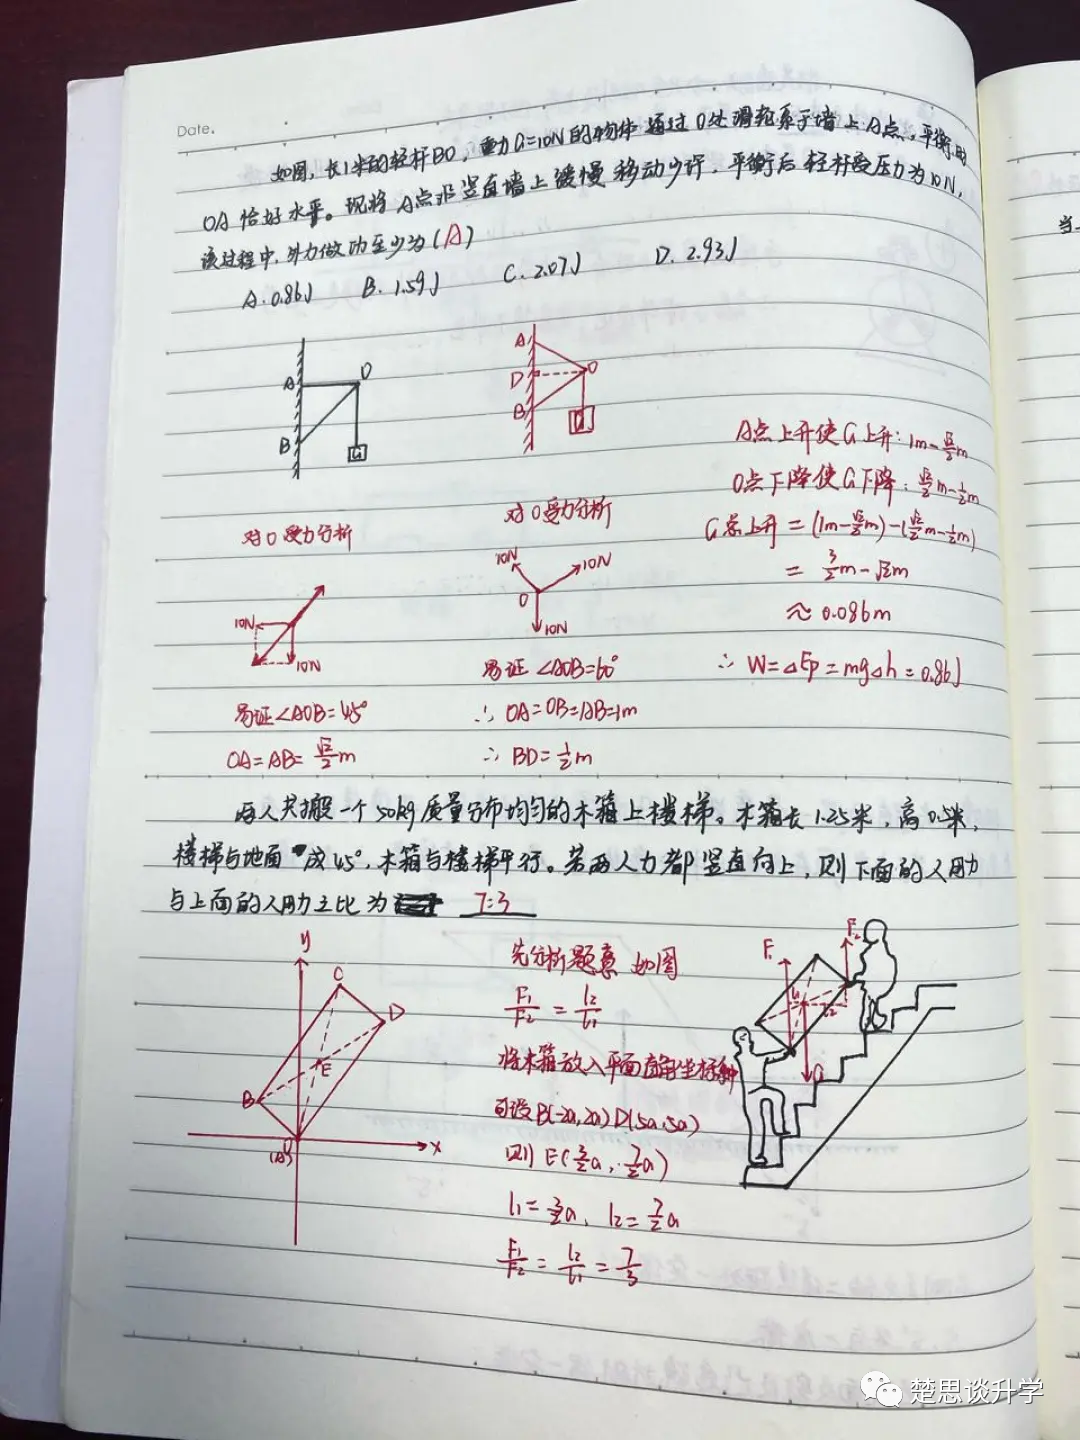 Date.
如图，长1米的轻杆BO，重力G=10N的物体通过O处滑轮系于墙上A点，平衡时
OA恰好水平。现将A点沿竖直墙上缓慢移动少许，平衡后轻杆受压力为10N，
该过程中，外力做功至少为(A)
A. 0.86J B. 1.59J C. 2.07J D. 2.93J
A O
B
G
A
D O
B
G
对O受力分析
10N
10N
易证∠AOB=45°
OA=AB=√2/2m
对O受力分析
10N 10N
O
10N
易证∠AOB=60°
∴OA=OB=AB=1m
∴BD=1/2m
A点上升使G上升：1m-√2/2m
O点下降使G下降：√2/2m-1/2m
G总上升=(1m-√2/2m)-(√2/2m-1/2m)
=3/2m-√2m
≈0.086m
∴W=△Ep=mg△h=0.86J
两人共搬一个50kg质量分布均匀的木箱上楼梯。木箱长1.25米，高0.5米，
楼梯与地面成45°，木箱与楼梯平行。若两人力都竖直向上，则下面的人用力
与上面的人用力之比为 7:3
y
C
D
E
B
(A) x
先分析题意 如图
F₁/F₂=l₂/l₁
将木箱放入平面直角坐标系中
可设B(-2a,2a) D(5a,5a)
则E(3/2a,7/2a)
l₁=3/2a，l₂=7/2a
F₁/F₂=l₂/l₁=7/3
F₁ F₂
l₁ l₂
G
当
楚思谈升学